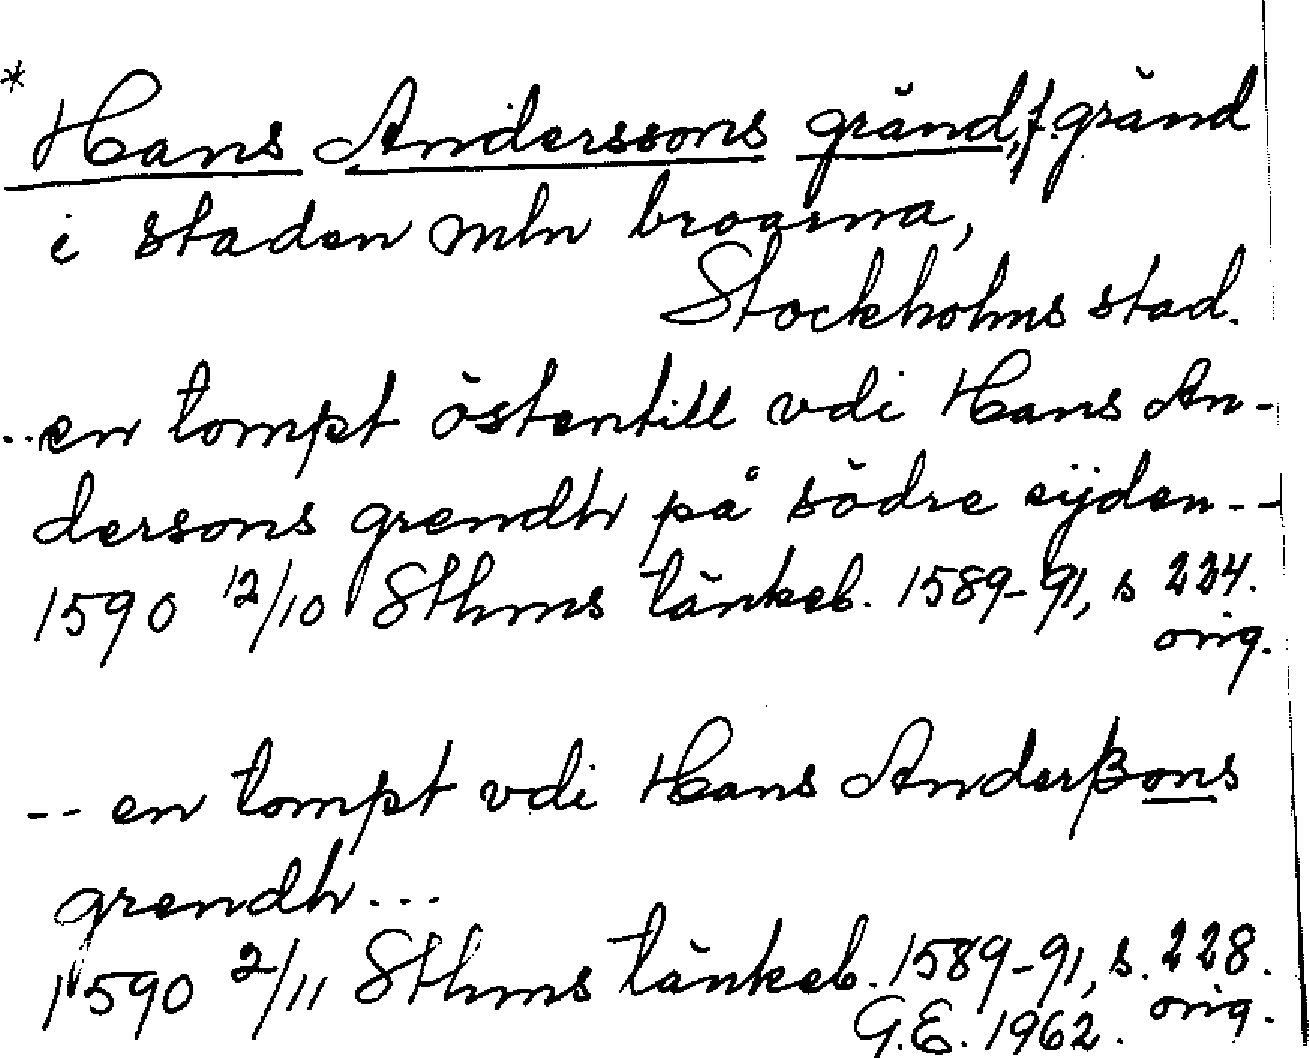 * Hans Anderssons gränd, f. gränd
i staden mln broarna,
Stockholms stad.
..en tompt östentill vdi Hans An-
dersons grendh på södre sijden--
1590 12/10 Sthms tänkeb. 1589-91, s 224.
orig.
-- en tompt vdi Hans Anderßons
grendh...
1590 2/11 Sthms tänkeb. 1589-91, s. 228.
orig.
G.E. 1962.